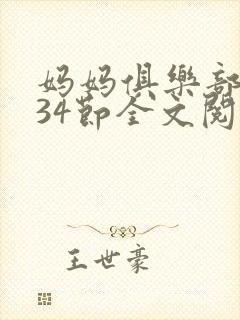 妈妈俱樂部
34節全文閱
王世豪